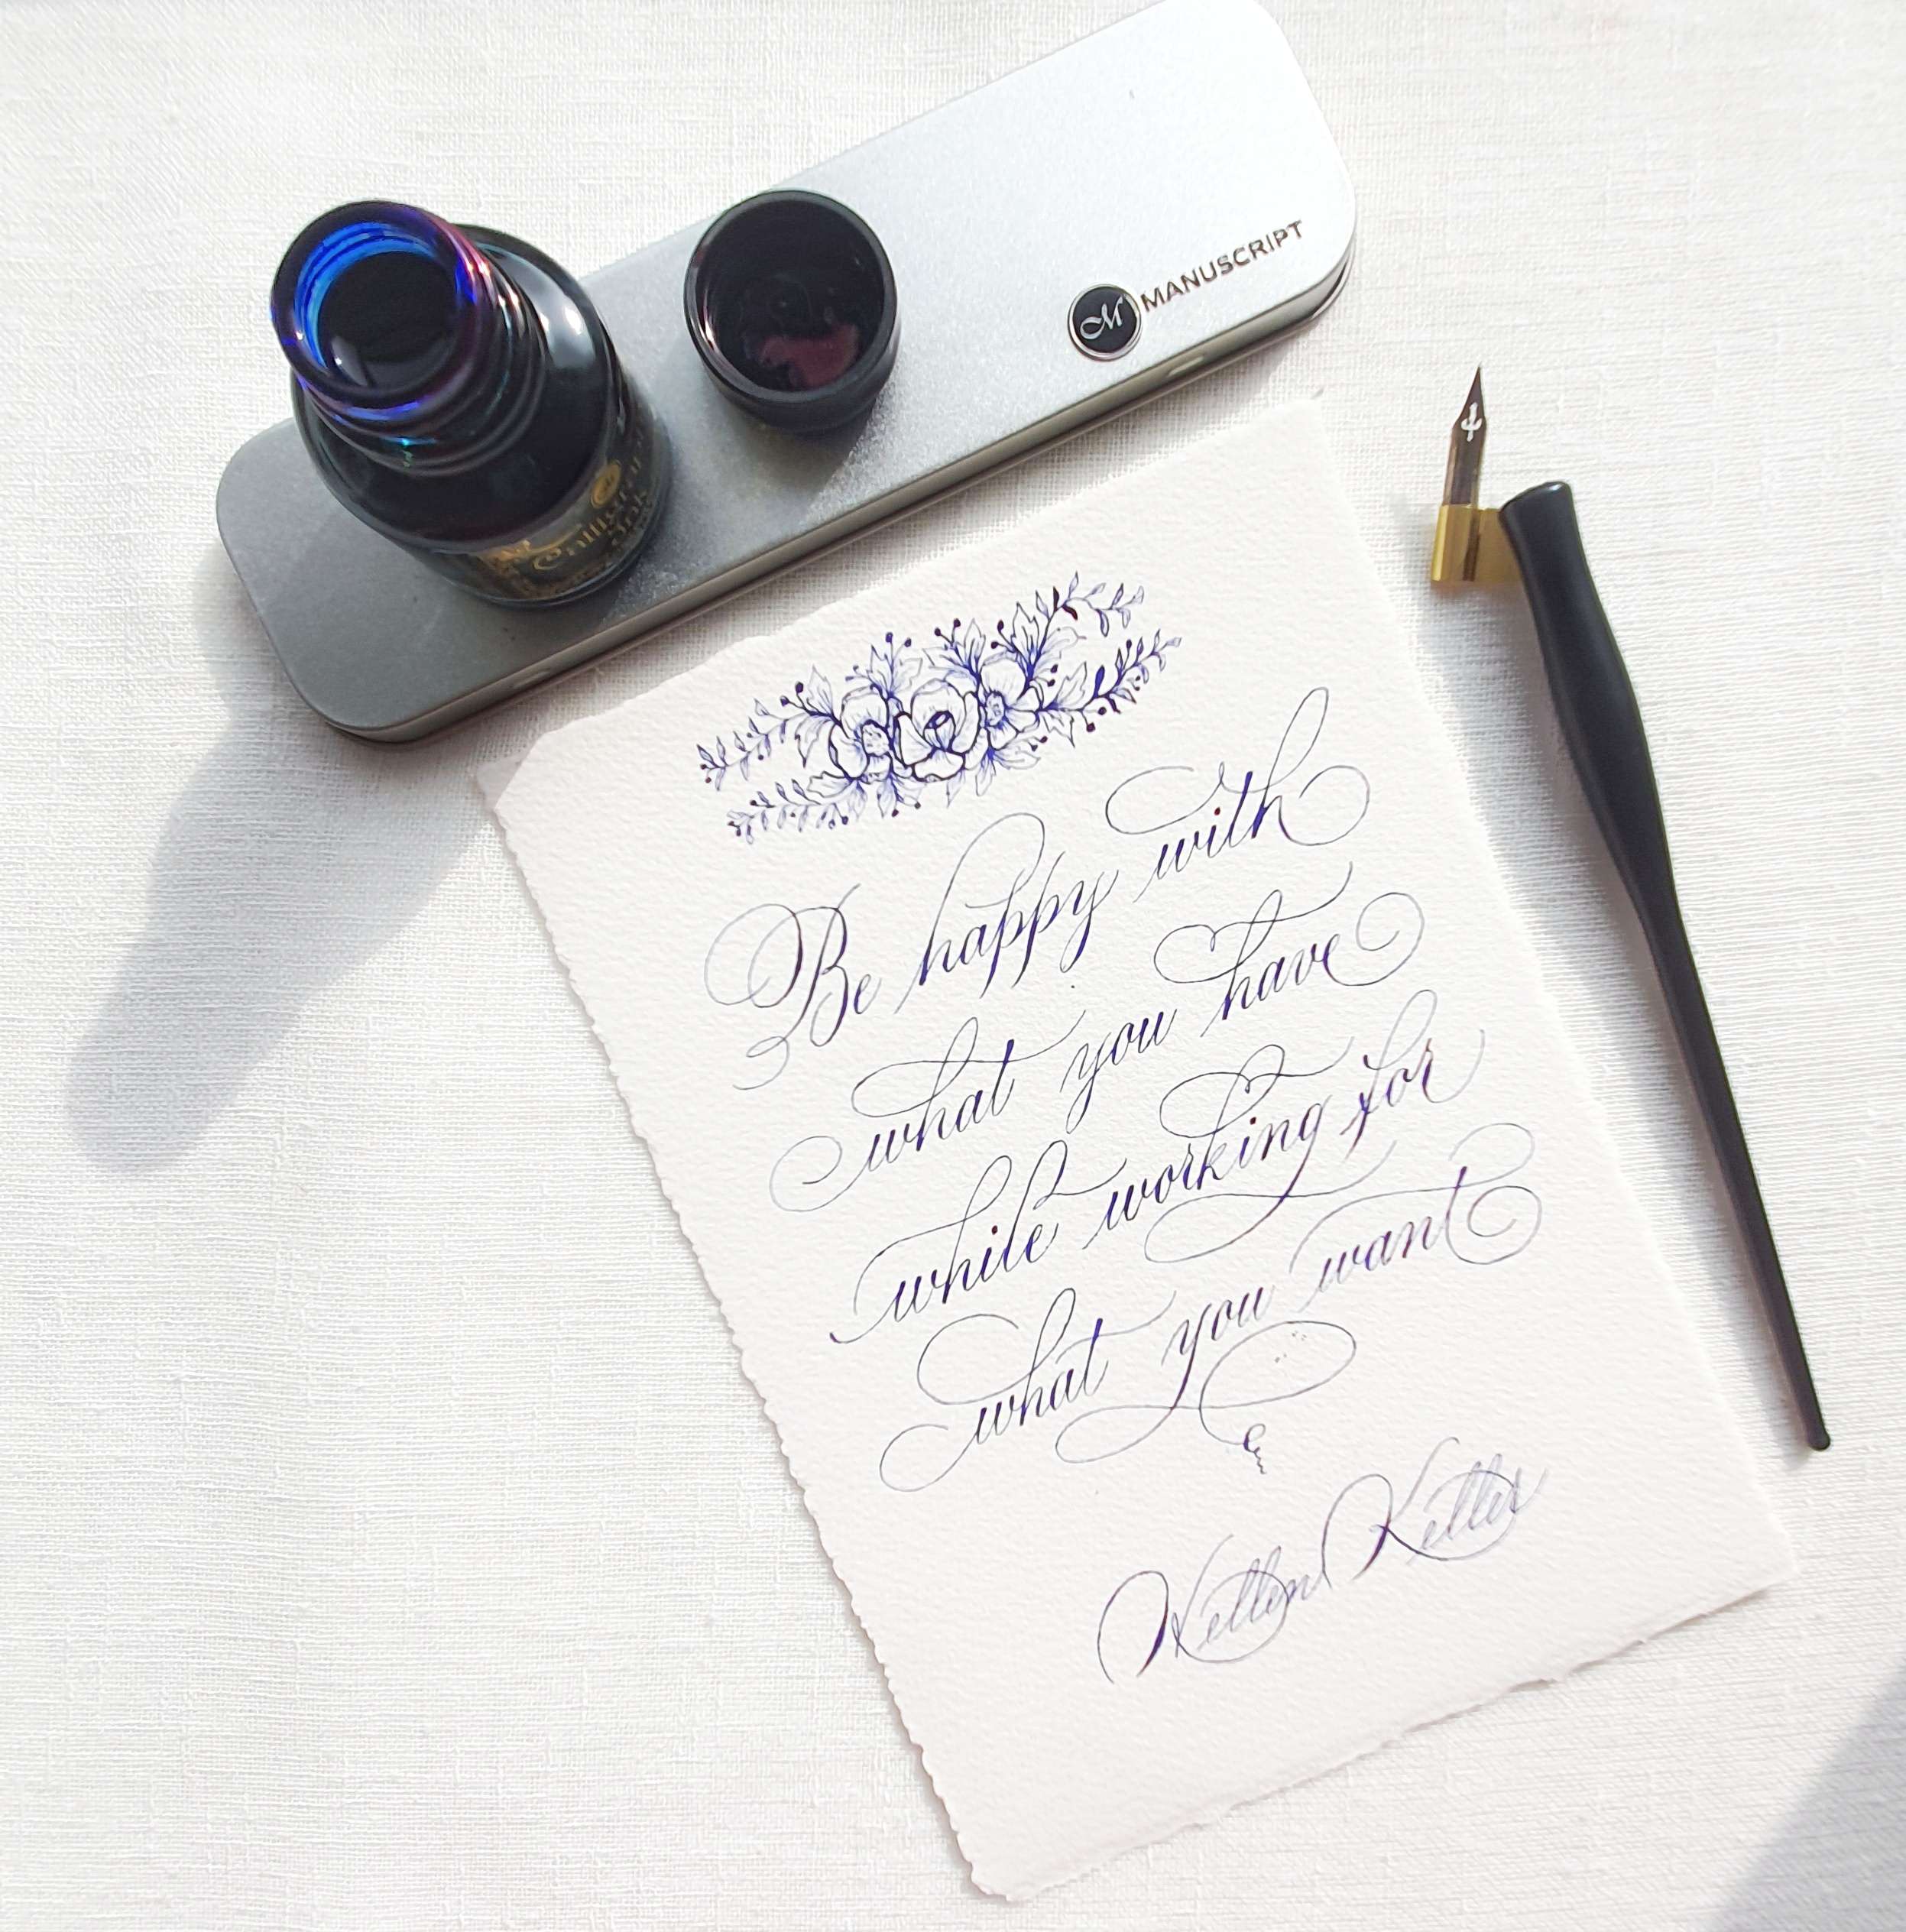 MANUSCRIPT
Calligraphy
Ink
Be happy with
what you have
while working for
what you want
Kellen Keller